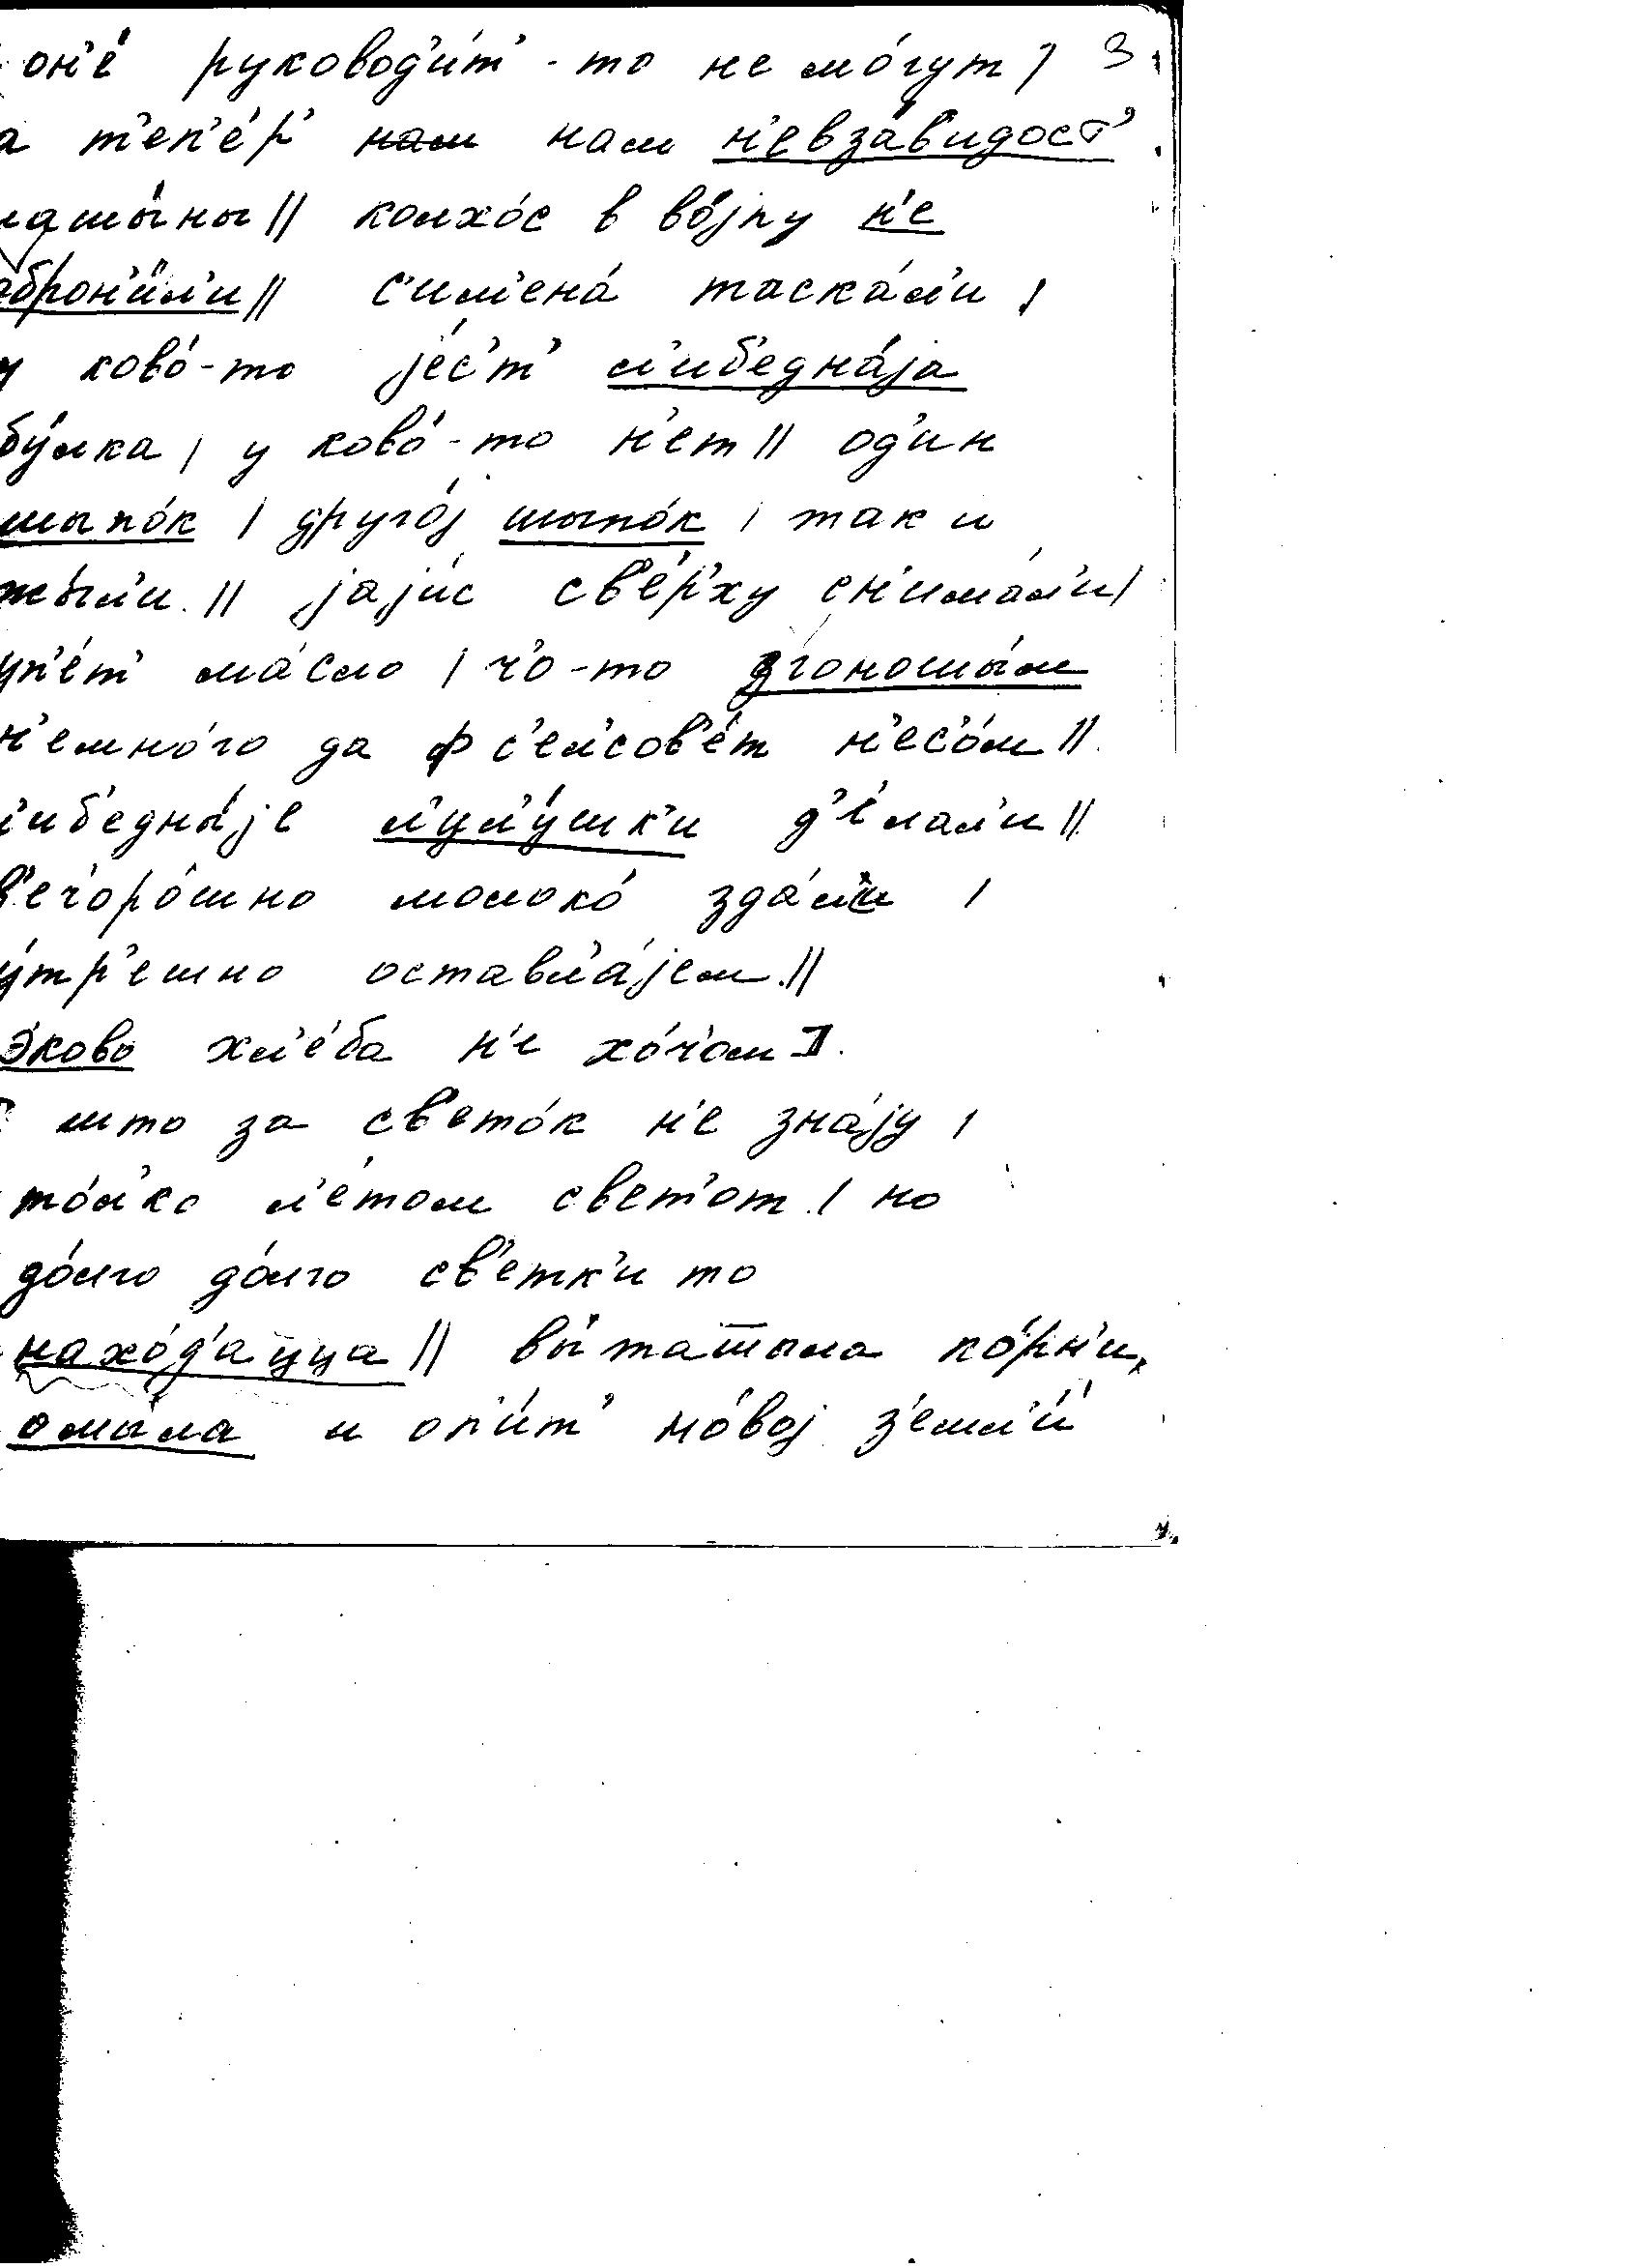 он'е́ руковод'и́т'-то не мо́гут / 3
а т'еп'е́р' нам нам н'евза́в'идост'
машы́ны // колхо́с в во́јну н'е
оброн'и́л'и // с'им'ена́ таска́л'и /
у ково́-то јес'т' л'иб'една́ја
бу́лка / у ково́-то н'ет // од'ин
шыпо́к / друго́ј шыпо́к / так и
жы́л'и // јаји́с св'е́рху сн'има́л'и /
ип'е́т' ма́сло / ч'о-то згоношы́м
н'емно́го да ф с'ел'сов'е́т н'ес'о́м //
л'иб'едны́је л'ул'у́шк'и д'е́лал'и //
в'еч'оро́шно молоко́ зда́л'и /
у́тр'ешно оставл'а́јем //
э́ково хл'е́ба н'е хо́ч'ом //
што за св'ето́к н'е зна́ју /
то́л'ко л'е́том свет'от / но
до́лго до́лго св'етк'и то
нахо́д'ацца // вы́ташыла ко́рн'и,
омы́ла и оп'и́т' но́вој з'емл'и́